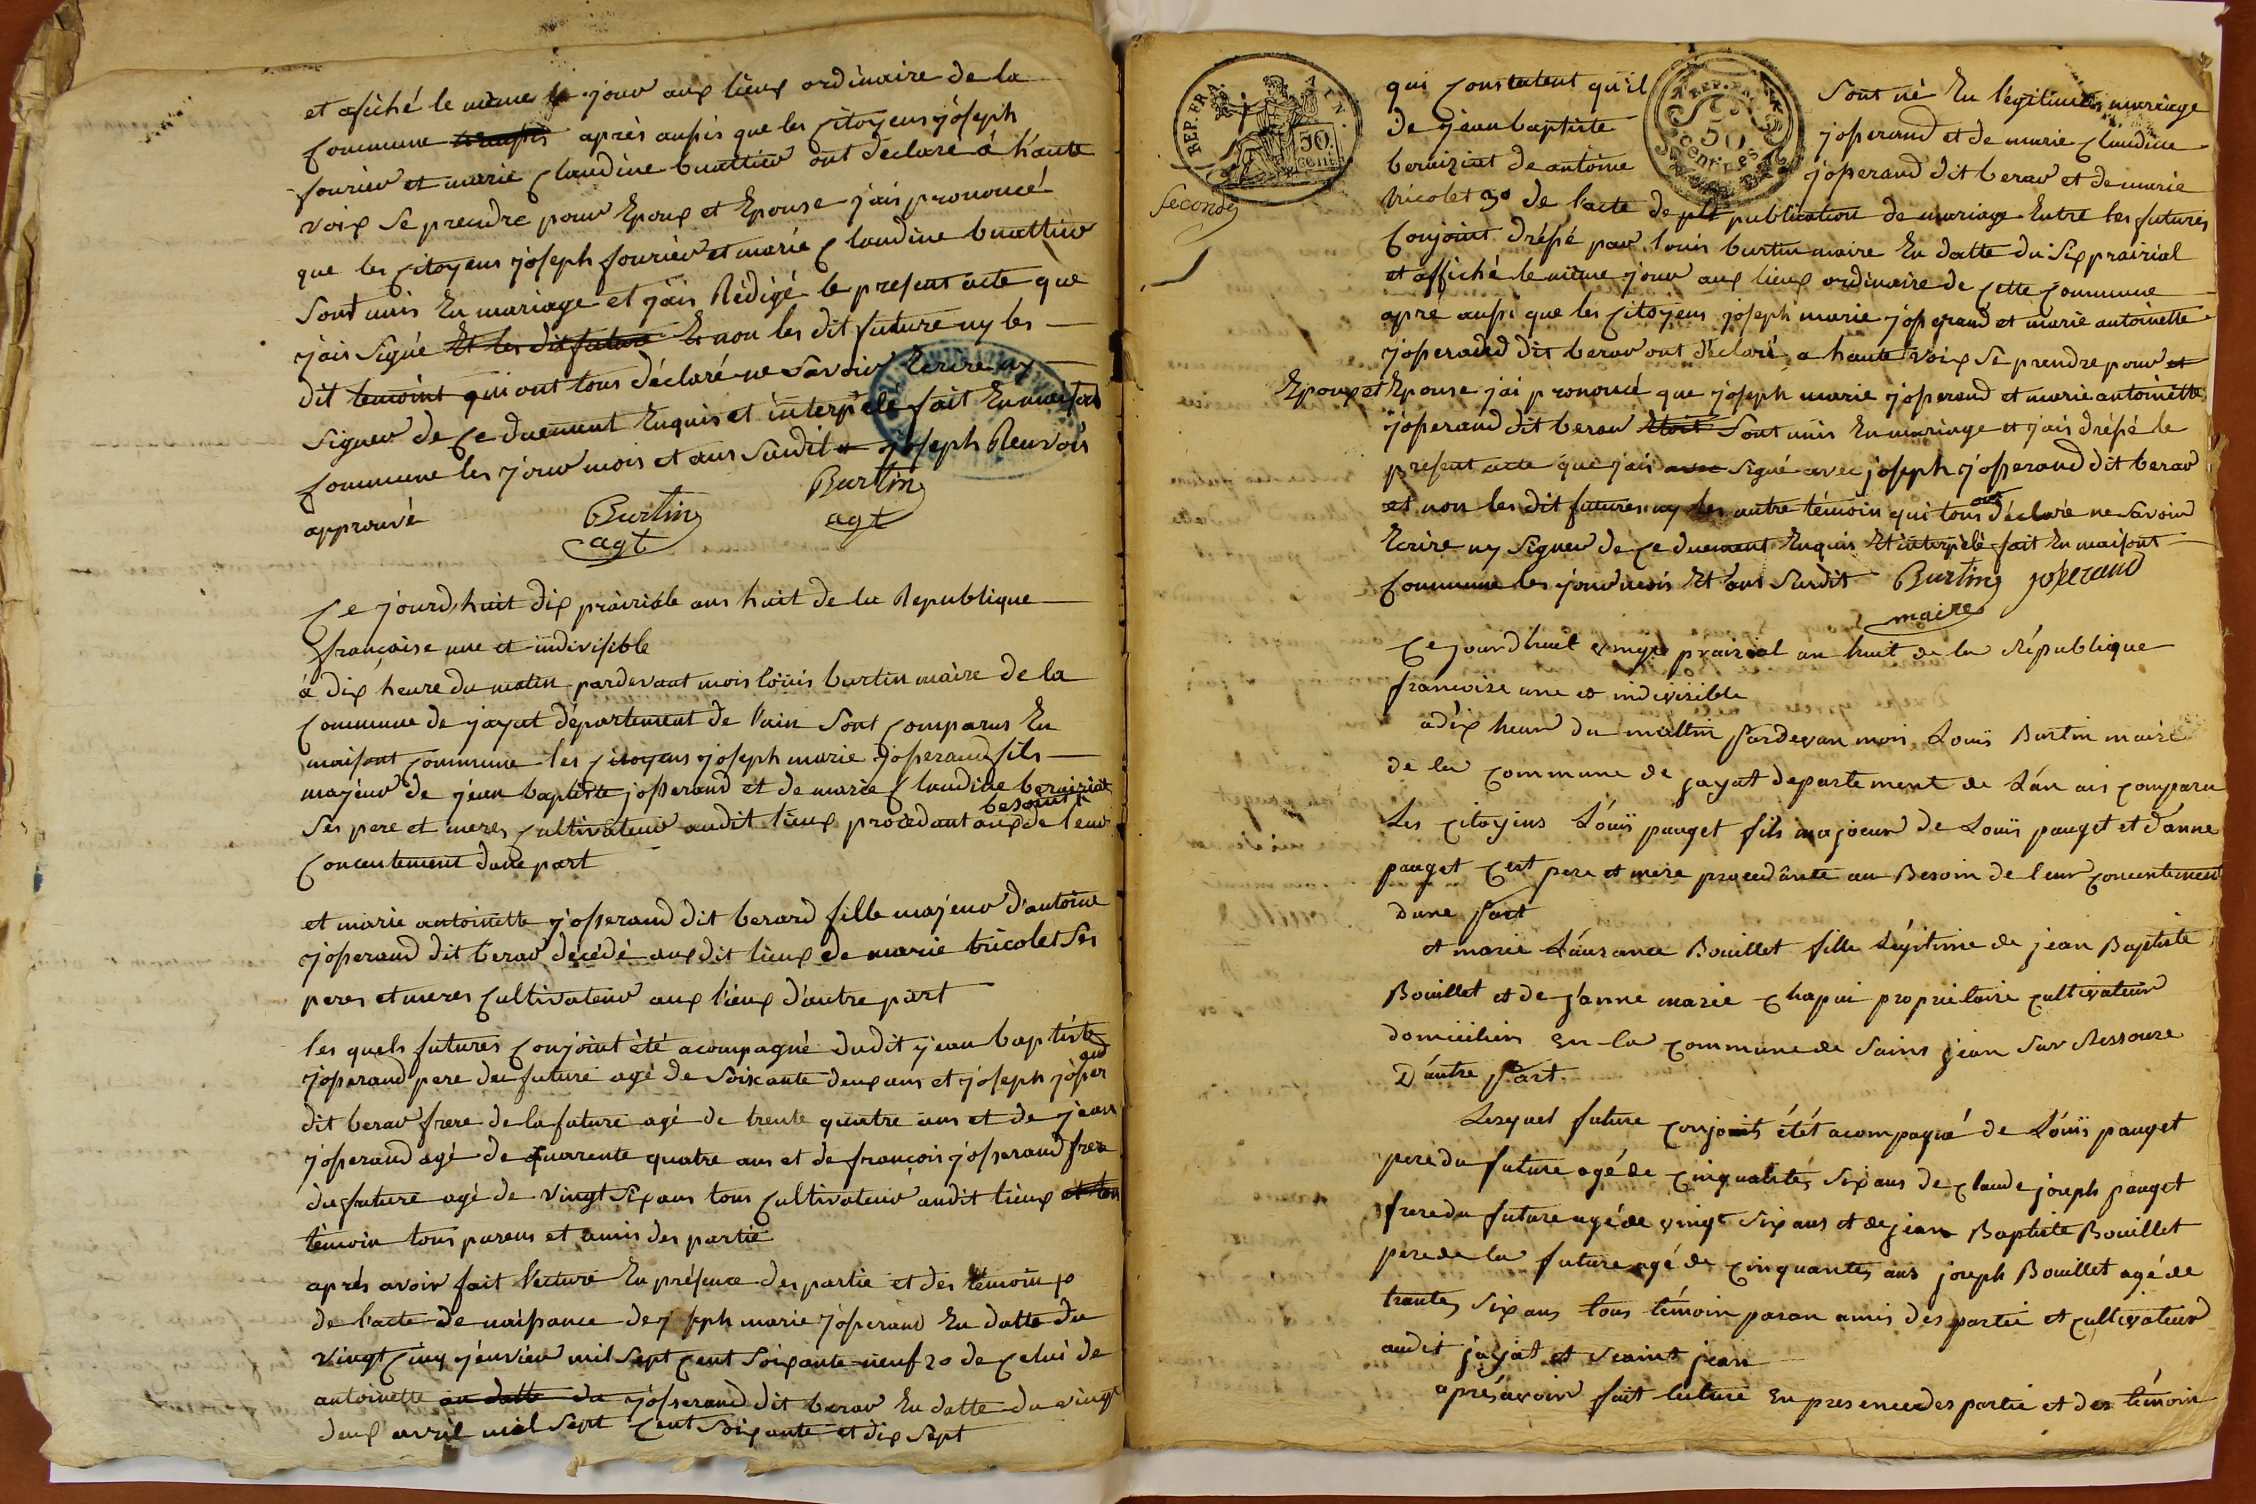 et afiché le même jour aux lieux ordinaire de la
commune après aussis que les citoyens joseph
fourier et marie claudine buattier ont déclaré á haute
voix se prendre pour Epoux et Epouse jais prononcé
que les citoyens joseph fourier et marie claudine buattier
sont unis En mariage et jais Rédigé le present acte que
jais signé Et les dit future Et non les dit future ny les
dit temoint qui ont tous déclaré ne savoir Ecrire ny
signer de ce duement Enquis et interpelé fait En maison
commune les jour mois et ans susdit joseph Renvois
approuvé Burtin Burtin
agt agt
Ce jourd'huit dix prairiale ans huit de la Republique
française une et indivisible
à dix heure du matin pardevant mois louis burtin maire de la
commune de jayat département de l'ain sont comparus En
maisont commune les citoyens joseph marie josserand fils
majeur de jean baptiste josserand et de marie claudine beraiziat
besoint
ses pere et meres cultivateur audit lieux procedant aux de leur
concentement dune part
et marie antoinette josserand dit berard fille majeur d'antoine
josserand dit berar décédé aux dit lieux de marie tricolet ses
peres et meres cultivateur aux lieux d'autre part
les quels futures conjoint été acompagné dudit jean baptiste
josserand pere du future agé de soixante deux ans et joseph josserand
dit berar frere de la future agé de trente quatre ans et de jean
josserand agé de quarente quatre ans et de françois josserand frere
du future agé de vingt six ans tous cultivateur audit lieux et tous
témoin tous parens et amis des partie
aprés avoir fait lecture En présence des partie et des témoin
de l'acte de naissance de joseph marie josserand En datte du
vingt cinq jenvier mil sept cent soixante neuf 2o de celui de
antoinette en datte du josserand dit berar En datte du vingt
deux avril mil sept cent soixante et dix sept
REP. FRA. ATN.
50. cent.
seconds
REP. FRA.
50
centimes
qui constatent qu'il sont né En légitimes mariage
de jean baptiste josserand et de marie claudine
beraiziat de antoine josserand dit berar et de marie
tricolet 3o de l'acte de publication de mariage Entre les futures
conjoint dréssé par louis burtin maire En datte du six prairial
et affiché le même jour aux lieux ordinaire de cette commune
apré aussi que les citoyens joseph marie josserand et marie antoinette
josserand dit berar ont déclaré a haute voix se prendre pour et
Epoux et Epouse jai prononcé que joseph marie josserand et marie antoinette
josserand dit berar étoit sont unis En mariage et jais dréssé le
present acte que jais avec signé avec joseph josserand dit berar
ont
et non les dit futures ny les autre témoin qui tous déclaré ne savoir
Ecrire ny signer de ce duement Enquis Et interpelé fait En maisont
commune les jour mois Et ans susdit Burtin josserand
maire
Ce jourdhuit vingt prairial an huit de la République
francoise une et indivisible
a dix heur du mattin pardevan mois Louis Burtin maire
de la commune de jayat departement de L'ain ais comparu
Les citoyens Louis pauget fils majoeur de Louis pauget et d'anne
pauget cest pere et mere procedânte au Besoin de leur concentement
dune part
et marie Lausance Bouillet fille Légitime de jean Baptiste
Bouillet et de janne marie chapui proprietaire cultivateur
domicilien En la commune de Saint jean sur Ressouze
D'autre part.
Lesquel future conjoint étét acompagné de Louis pauget
pere du future agé de cinquantes six ans de claude joseph pauget
frere du future agé de vingt six ans et de jean Baptiste Bouillet
pere de la future agé de cinquantes ans joseph Bouillet agé de
trantes six ans tous témoin paran amis des partie et cultivateur
audit jayat et seaint jean
aprés avoir fait lecture En presence des partie et des témoin